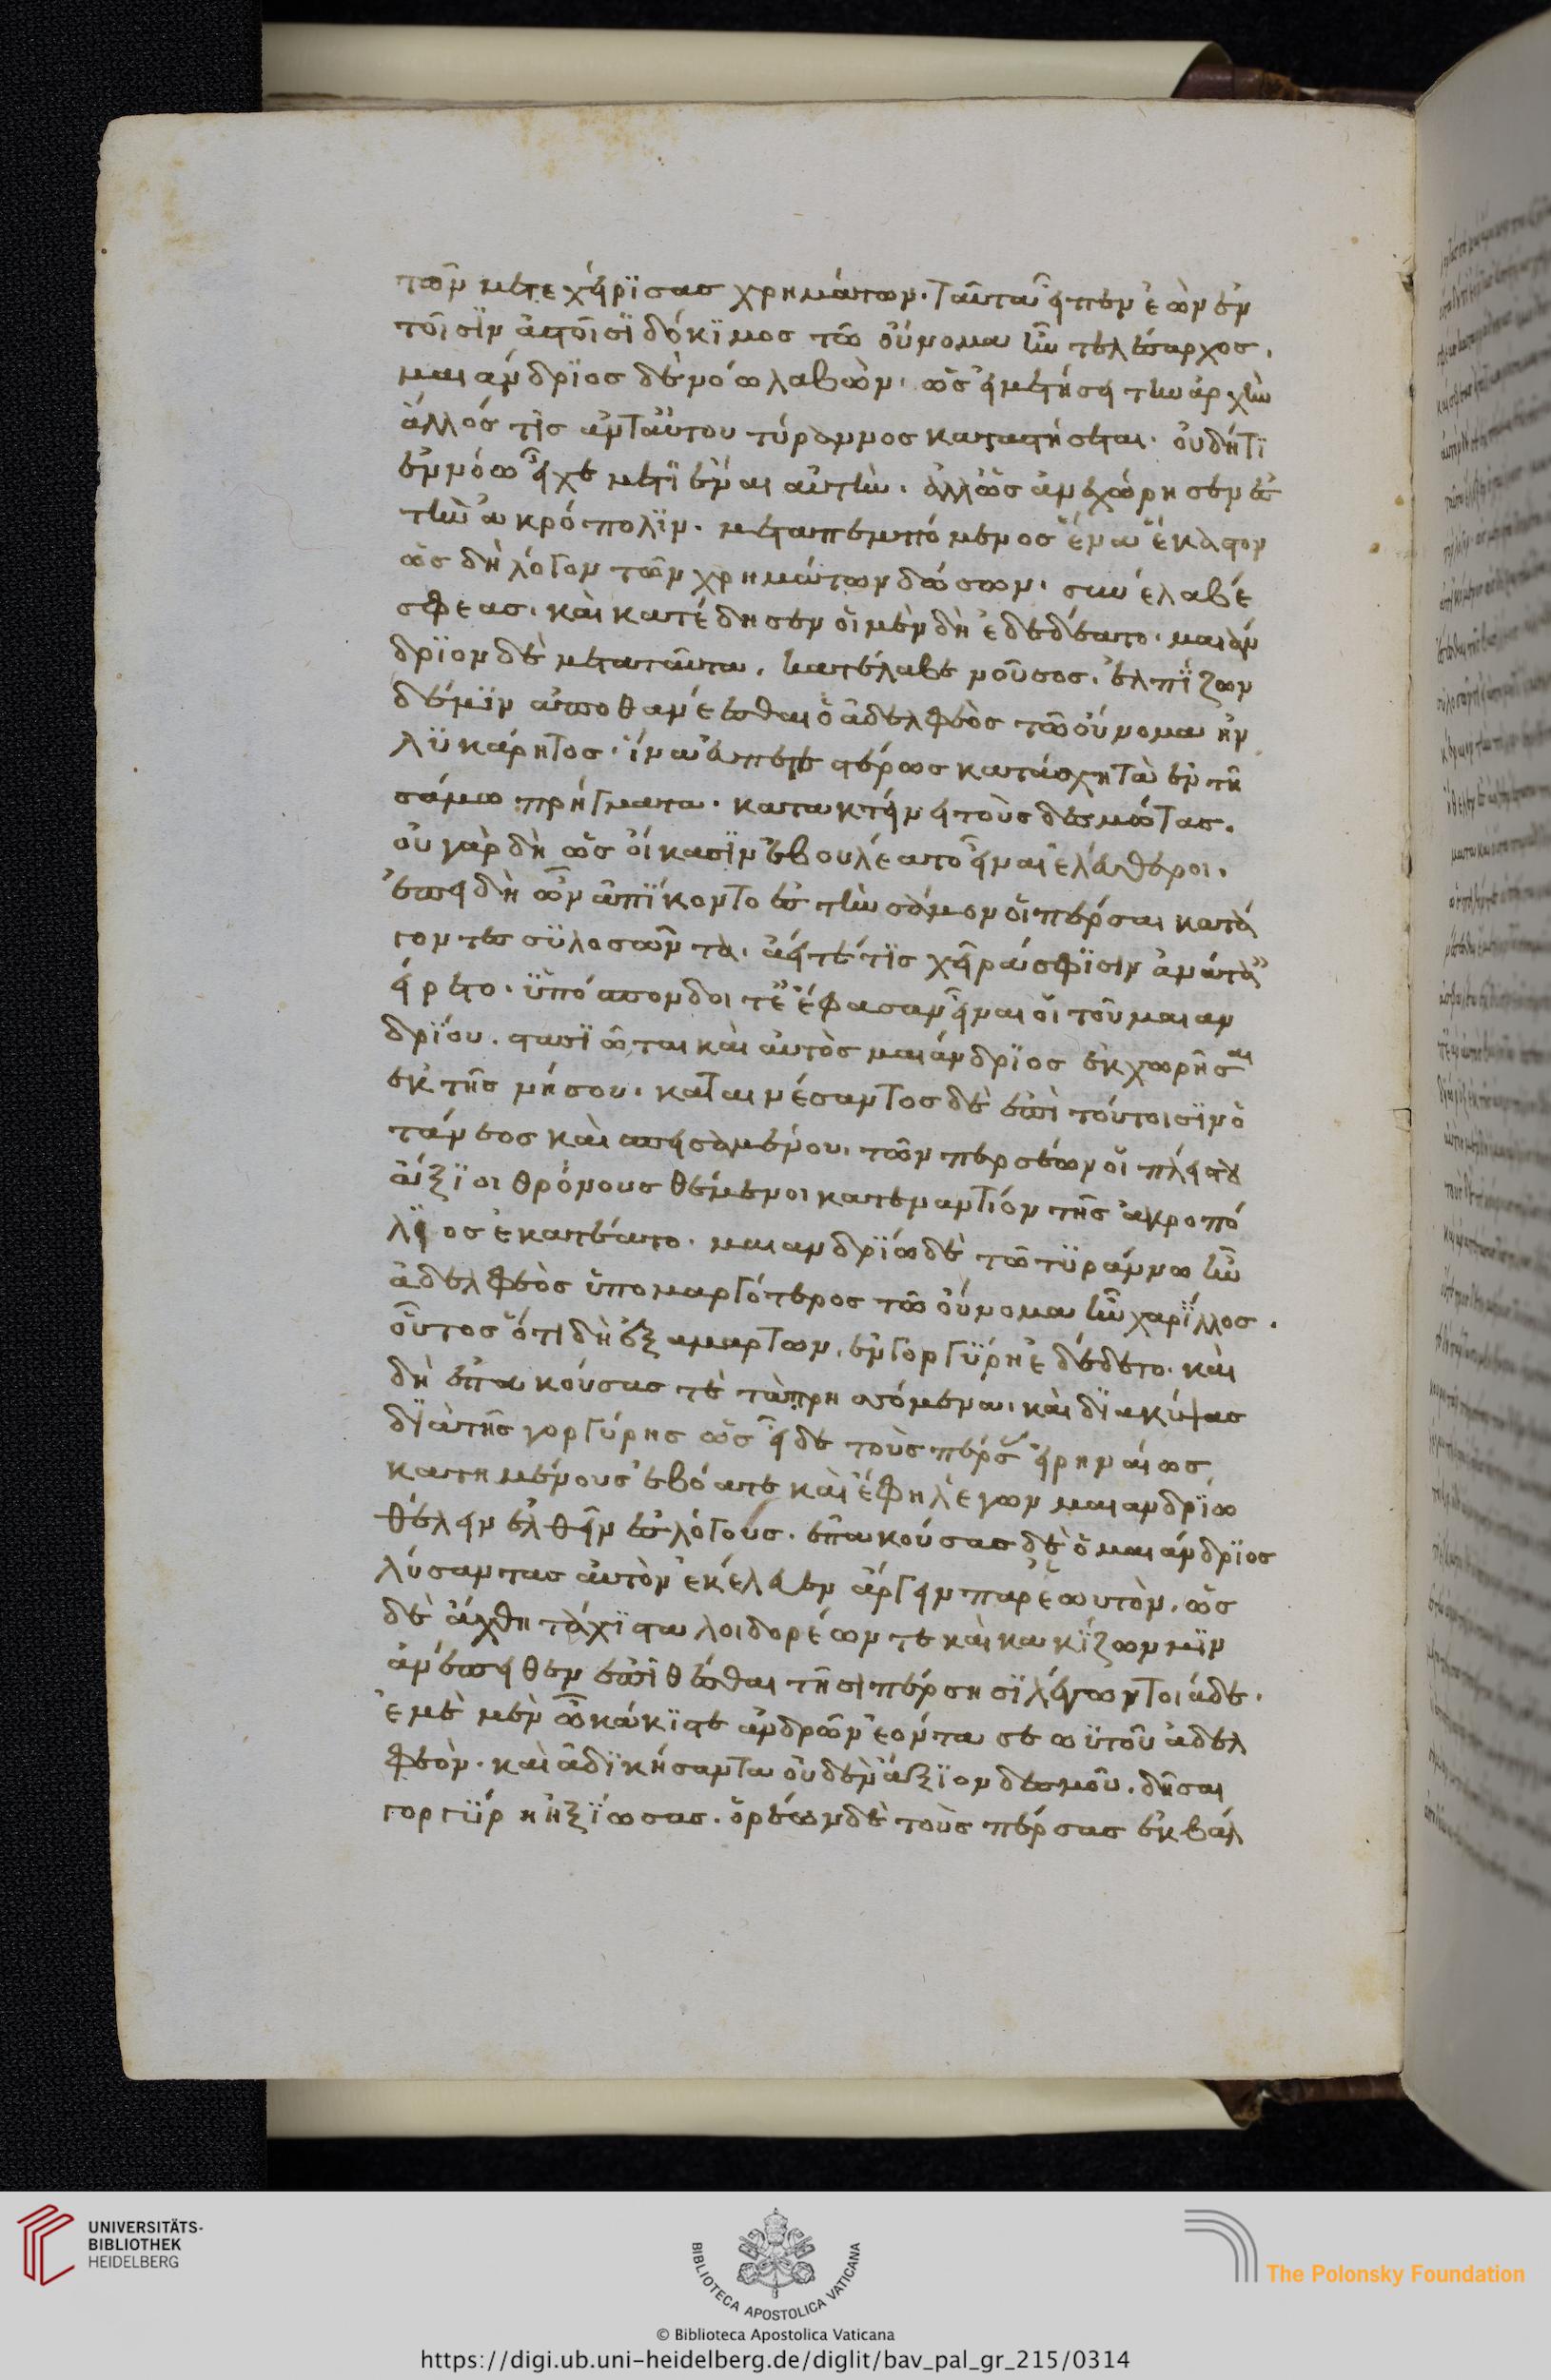 τῶν μετεχείρϊσας χρημάτων. ταῦτα εἶπεν ἐὼν ἐν
τοῖσϊν ἀστοῖσϊ δόκϊμος τῶ οὔνομα ἦν τελέσαρχος.
μαιάνδρϊος δὲ νόω λαβὼν. ὡς εἰ μετήσει τὴν ἀρχὴν
ἄλλός τϊς ἀντ' αὐτου τύραννος καταστήσεται. οὐδήτϊ
ἐν νόω εἶχε μετϊέναι αὐτὴν. ἀλλ' ὡς ἀνεχώρησεν ἐς
τὴν ἀκρόπολϊν. μεταπεμπόμενος ἕνα ἕκαστον
ὡς δὴ λόγον τῶν χρημάτων δώσων. συνέλαβέ
σφεας. καὶ κατέδησεν οἱ μὲν δὴ ἐδεδέατο. μαιάν
δρϊον δὲ μετὰ ταῦτα. κατέλαβε νοῦσος. ἐλπΐζων
δέ μϊν ἀποθανέεσθαι ὁ ἀδελφεὸς τῶ οὔνομα ἦν
λϋκάρητος. ἵνα εὐπετεστέρως κατάσχη τὰ ἐν τῆ
σάμω πρήγματα. κατακτείνει τοὺς δεσμώτας.
οὐ γὰρ δὴ ὡς οἴκασϊν ἐβουλέατο εἶναι ἐλεύθεροι.
ἐπειδὴ ὦν ἀπΐκοντο ἐς τὴν σάμον οἱ πέρσαι κατά
γοντες σϋλοσῶντα. οὔτέ τϊς χεῖρά σφϊσιν ἀντά
είρετο. ϋπόσπονδοι τὲ ἔφασαν εἶναι οἱ τοῦ μαιαν
δρΐου. στασϊῶται καὶ αὐτὸς μαιάνδρϊος ἐκχωρῆσαι
ἐκ τῆς νήσου. καταινέσαντος δὲ ἐπὶ τούτοισϊν ὀ
τάνεος καὶ σπεισαμένου. τῶν περσέων οἱ πλείστου
ἄξϊοι θρόνους θέμενοι κατεναντΐον τῆς ἀκροπό
λϊος ἐκατέατο. μαιανδρΐω δὲ τῶ τϋράννω ἦν
ἀδελφεὸς ὑπομαργότερος τῶ οὔνομα ἦν χαρΐλλος.
οὗτος ὅτι δὴ ἐξαμαρτων. ἐν γοργΰρη ἐδέδετο. καὶ
δὴ ἐπακούσας τὲ τὰ πρησσόμενα. καὶ δϊακύψας
δϊὰ τῆς γοργύρης ὡς εἶδε τοὺς πέρσας εἰρηναίως
κατημένους ἐβόατε καὶ ἔφη λέγων μαιανδρΐω
θέλειν ἐλθεῖν ἐς λόγους. ἐπακούσας δὲ ὁ μαιάνδρϊος
λύσαντας αὐτὸν ἐκέλευεν ἄγειν παρ' ἑωυτὸν. ὡς
δὲ ἄχθη τάχϊστα λοιδορέων τε καὶ κακΐζων μϊν
ἀνέπειθεν ἐπιθέσθαι τῆσι πέρσησϊ λέγων τοιάδε.
ἐμὲ μὲν ὦ κάκϊστε ἀνδρῶν ἐόντα σεωϋτοῦ ἀδελ
φεὸν. καὶ ἀδϊκήσαντα οὐδὲν ἄξϊον δεσμοῦ. δῆσαι
γοργΰρη ἠξΐωσας. ὁρέων δὲ τοὺς πέρσας ἐκβάλ
UNIVERSITÄTS-
BIBLIOTHEK
HEIDELBERG
BIBLIOTECA APOSTOLICA VATICANA
The Polonsky Foundation
© Biblioteca Apostolica Vaticana
https://digi.ub.uni-heidelberg.de/diglit/bav_pal_gr_215/0314